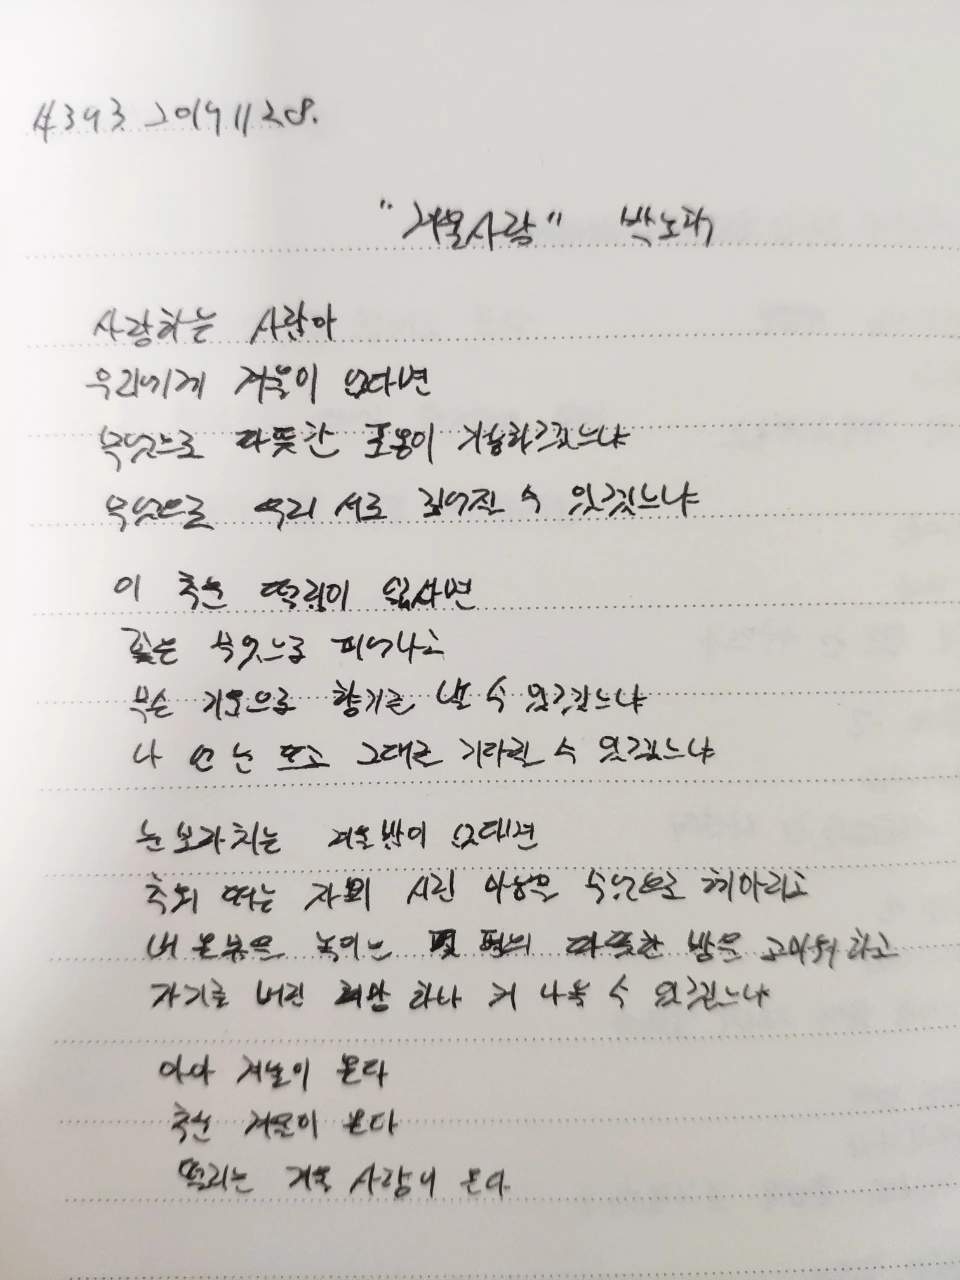 4393 2019 11 28.
"겨울사랑" 박노해
사랑하는 사람아
우리에게 겨울이 없다면
무엇으로 따뜻한 포옹이 가능하겠느냐
무엇으로 우리 서로 깊어질 수 있겠느냐
이 추운 떨림이 없다면
꽃은 무엇으로 피어나고
무슨 기운으로 향기를 낼 수 있겠느냐
나 언 눈 뜨고 그대를 기다릴 수 있겠느냐
눈보라 치는 겨울밤이 없다면
추위 떠는 자의 시린 마음을 무엇으로 헤아리고
내 온몸을 녹이는 몇 평의 따뜻한 방을 고마워하고
자기를 버린 희망 하나 커 나올 수 있겠느냐
아아 겨울이 온다
추운 겨울이 온다
떨리는 겨울 사랑이 온다